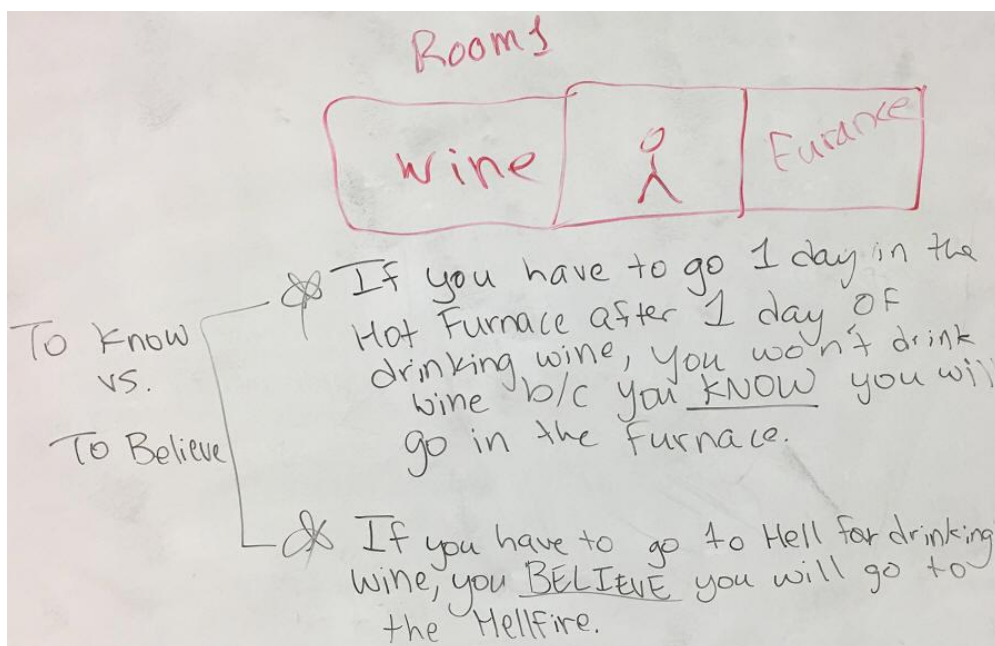 Rooms
Wine
Furance
To Know
vs.
To Believe
If you have to go 1 day in the
Hot Furnace after 1 day of
drinking wine, you won't drink
wine b/c you KNOW you will
go in the furnace.
If you have to go to Hell for drinking
wine, you BELIEVE you will go to
the Hellfire.